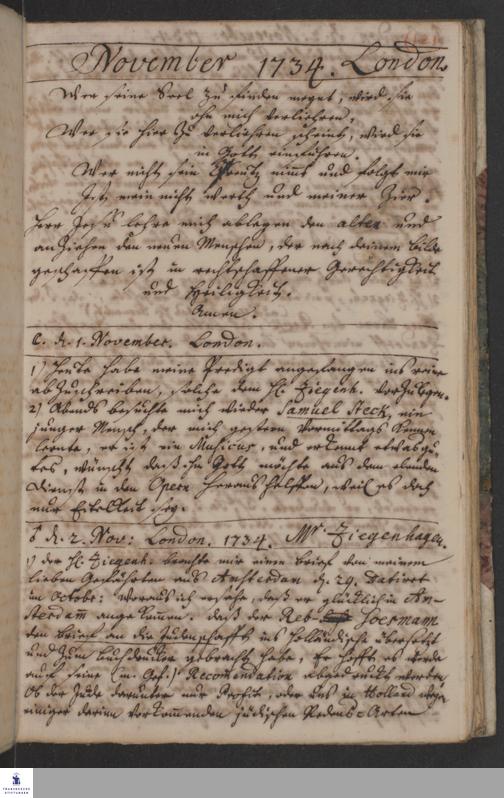 November 1734. London.
Wer seine Seel zu finden meynt, wird sie
ohn mich verliehren,
Wer sie hier zu verliehren scheint, wird sie
in Gott einführen.
Wer nicht sein Creutz nimt und folgt mir
Ist mein nicht werth und meiner Zier.
Herr Jesu lehre mich ablegen den alten und
anziehen den neuen Menschen, der nach deinem Bilde
geschaffen ist in rechtschaffener Gerechtigkeit
und Heiligkeit.
Amen.
d. 1. November. London.
1) Heute habe meine Predigt angefangen ins reine
abzuschreiben, solche dem H. Ziegenh. vorzulegen.
2) Abends besuchte mich wieder Samuel Heck, ein
junger Mensch, der mich gestern Vormittags kennen
lernte, er ist ein Musicus, und erkennt etwas gu-
tes, wünscht daß ihn Gott möchte aus dem elenden
Dienst in den Opern heraus helffen, weil es doch
nur Eitelkeit sey.
d. 2. Nov: London. 1734. Mr Ziegenhagen.
1) der H. Ziegenh. brachte mir einen brief von meinem
lieben Gefährten aus Amsterdam d. 29. datiret
in Octobr: woraus ich ersehe, daß er glücklich in Am-
sterdam angekommen. daß der Reb
den brief an die Judenschafft ins Holländische übersetzt
und zum buchdrucker gebracht habe, Er hofft es werde
auf seine Recommendation abgedruckt werden
Ob der Jude darunter nur, oder das in Holland wege
einiger darinn vorkommenden jüdischen Redens-Arten
FRANCKESCHE STIFTUNGEN